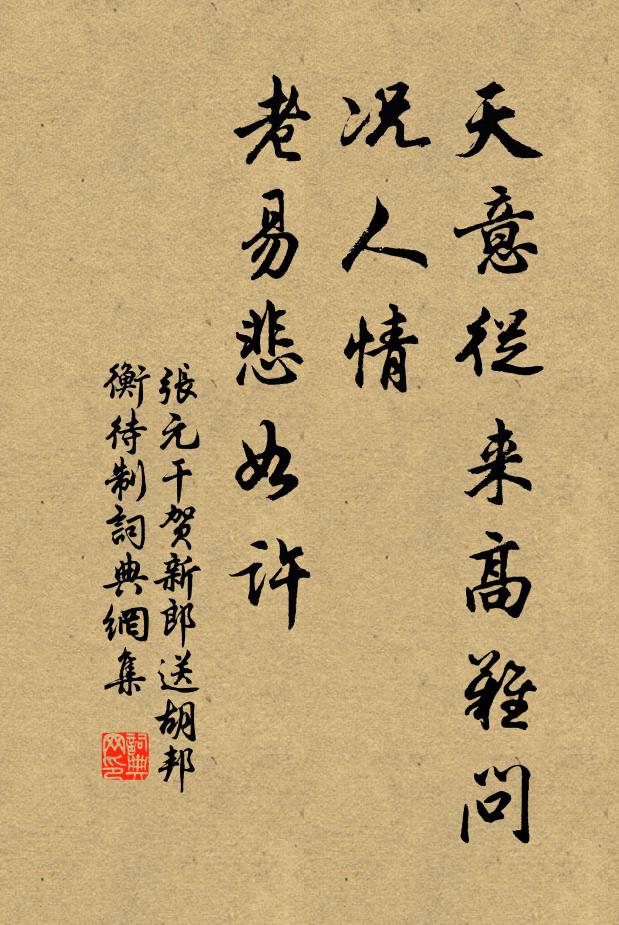 天意從来高難問
况人情
老易悲如許
張元干贺新郎送胡邦
衡待制詞典網集
詞典網印